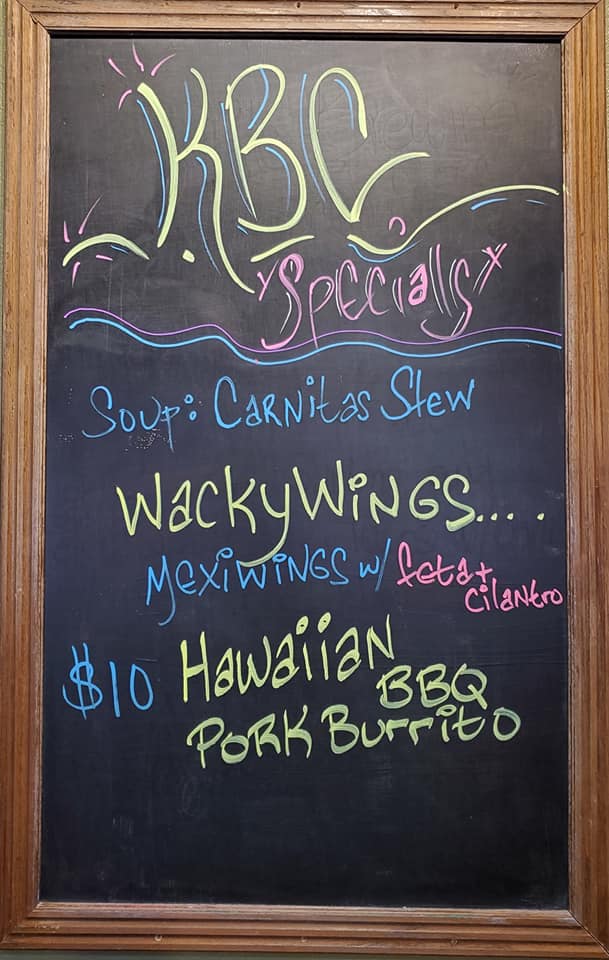 KBC
Specials
Soup: Carnitas Stew
Wacky Wings.....
Mexiwings w/ feta +
cilantro
$10 Hawaiian
BBQ
Pork Burrito